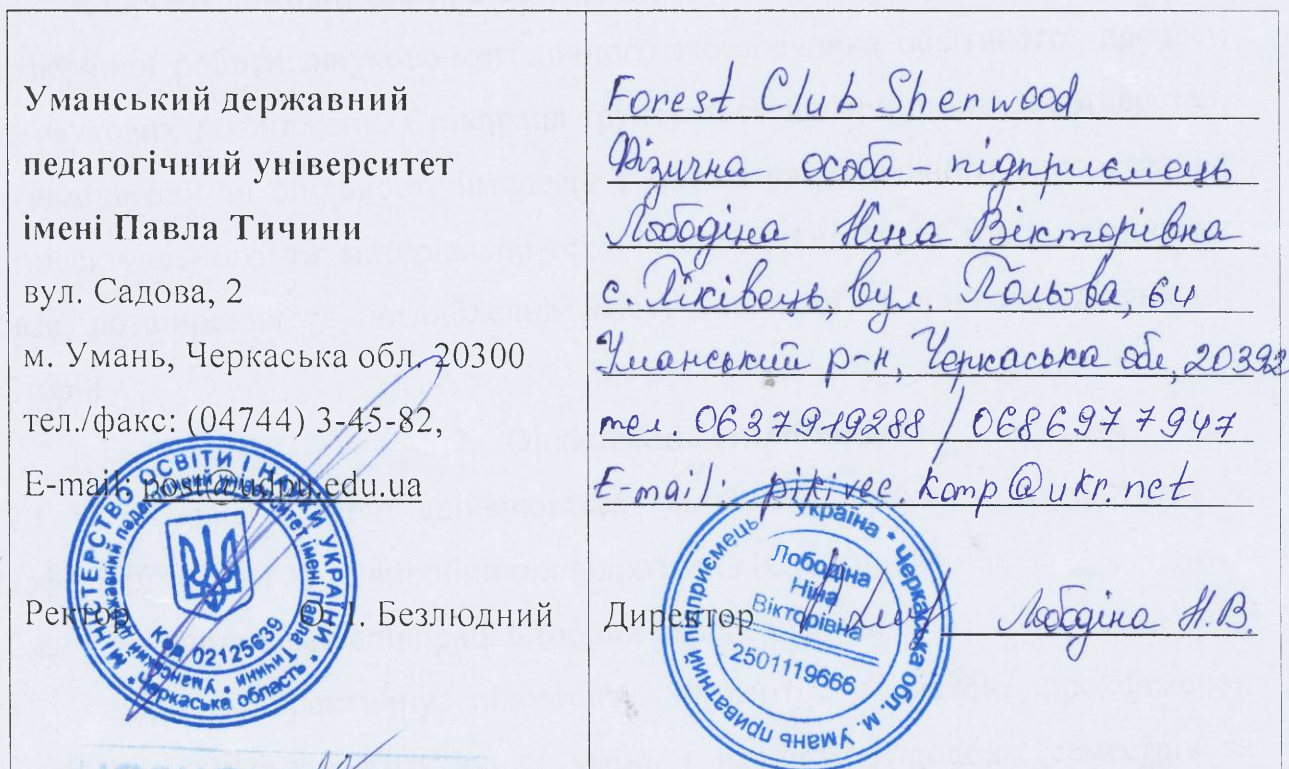 Уманський державний
педагогічний університет
імені Павла Тичини
вул. Садова, 2
м. Умань, Черкаська обл. 20300
тел./факс: (04744) 3-45-82,
E-mail: post@udpu.edu.ua
Ректор О. І. Безлюдний
МІНІСТЕРСТВО ОСВІТИ І НАУКИ УКРАЇНИ
Уманський державний педагогічний університет імені Павла Тичини
Черкаська область
Код 02125639
Forest Club Sherwood
Фізична особа-підприємець
Лободіна Ніна Вікторівна
с. Піківець, вул. Польова, 64
Уманський р-н, Черкаська обл, 20392
тел. 0637919288 / 0686977947
E-mail: pikivec.komp@ukr.net
Директор Лободіна Н.В.
Україна * Черкаська обл. м. Умань приватний підприємець
Лободіна
Ніна
Вікторівна
2501119666